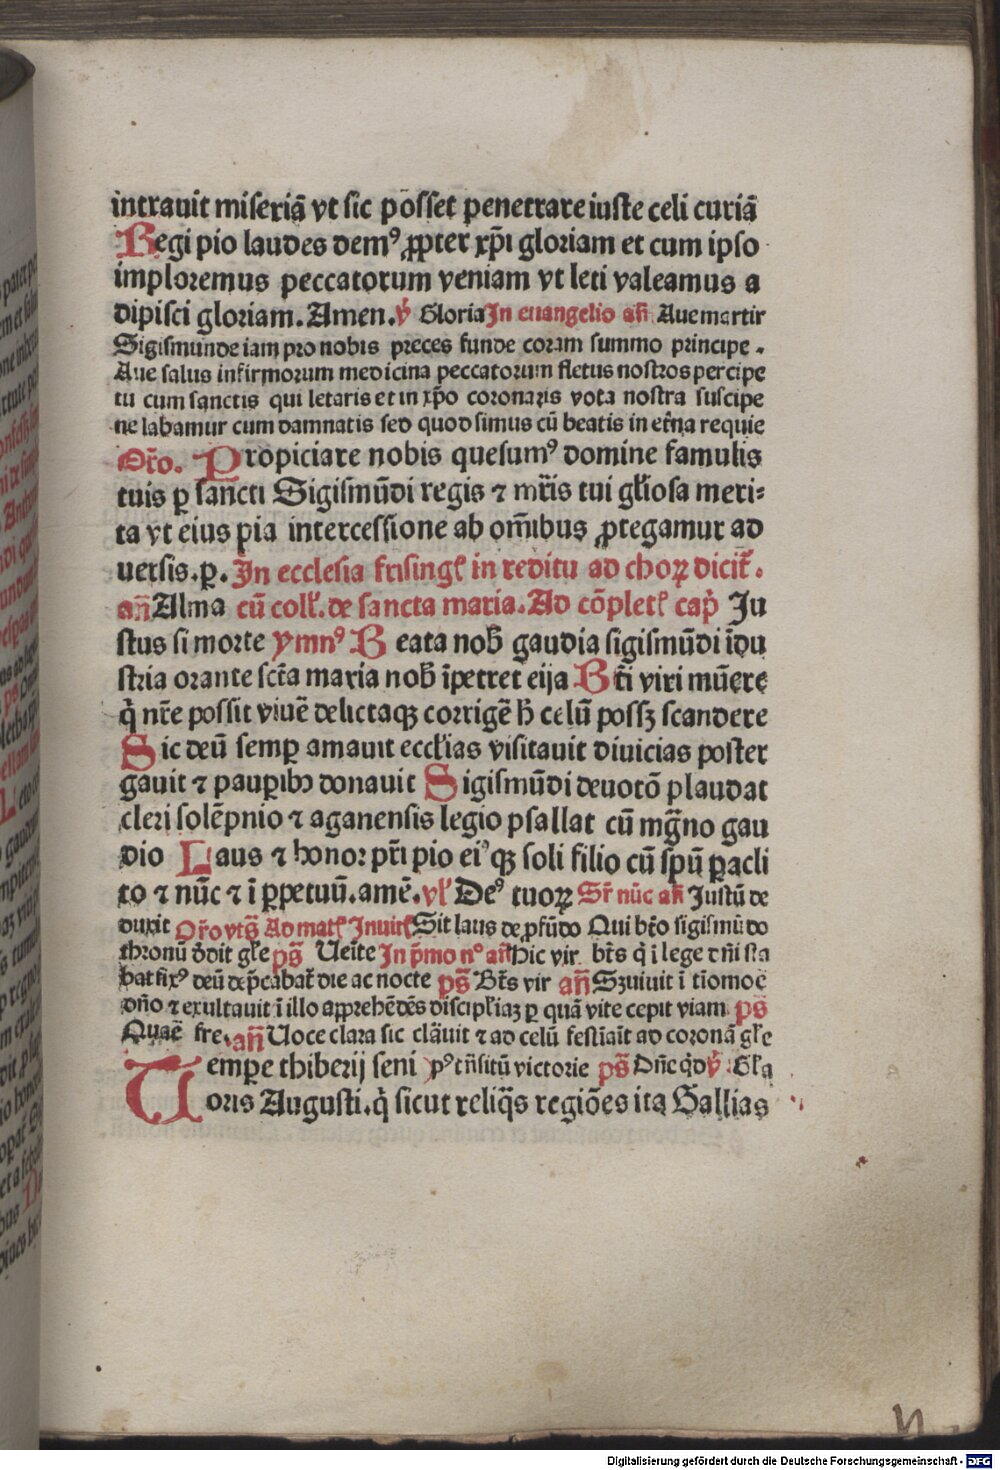 intrauit miseriā vt sic posset penetrare iuste celi curiā
Regi pio laudes demꝰ ꝓpter xp̄i gloriam et cum ipso
imploremus peccatorum veniam vt leti valeamus a
dipisci gloriam. Amen. ꝟ Gloria In euangelio añ Aue martir
Sigismunde iam pro nobis preces funde coram summo principe.
Aue salus infirmorum medicina peccatorum fletus nostros percipe
tu cum sanctis qui letaris et in xp̄o coronaris vota nostra suscipe
ne labamur cum damnatis sed quod simus cū beatis in et̄na requie
Or̄o. Propiciare nobis quesumꝰ domine famulis
tuis ꝑ sancti Sigismūdi regis ⁊ mr̄is tui gl̄iosa meri⸗
ta vt eius pia intercessione ab om̄ibus ꝓtegamur ad
uersis. ꝑ. In ecclesia frisingꝭ in reditu ad choꝝ dicit̄.
añ Alma cū coll̄. de sancta maria. Ad cōpletꝭ cap̄ Ju
stus si morte ymnꝰ Beata nob̄ gaudia sigismūdi īdu
stria orante sct̄a maria nob̄ īpetret eija Bt̄i viri mūere
q̇ nr̄e possit viuē delictaqꝫ corrigē h̄ celū possꝫ scandere
Sic deū semꝑ amauit eccl̄ias visitauit diuicias poster
gauit ⁊ pauꝑibꝫ donauit Sigismūdi deuotō plaudat
cleri solēpnio ⁊ aganensis legio psallat cū mg̅no gau
dio Laus ⁊ honor pr̄i pio eiꝰqꝫ soli filio cū sp̄u ꝑacli
to ⁊ nūc ⁊ ī ꝑpetuū. amē. vꝉ Deꝰ tuoꝝ Sr̄ nūc añ Justū de
duxit Or̄o vts̄ Ad matꝭ Inuitꝭ Sit laus de ꝓfūdo Qui bt̄o sigismūdo
thronū ddit gl̄e ps̄ Ueīte In p̄mo nꝰ añ Hic vir. bt̄s q̇ ī lege dn̄i sta
bat fixꝰ deū dep̄cabat̄ die ac nocte ps̄ Bt̄s vir añ Szuiuit ī tīomoē
dn̄o ⁊ exultauit ī illo apprehēdēs discipl̄iaꝫ ꝑ quā vite cepit viam ps̄
Quaē fre. añ Uoce clara sic clāuit ⁊ ad celū festīaīt ad coronā gl̄e
Tempe thiberij seni pꝰ tn̄sitū victorie ps̄ Dn̄e qd ꝟ Gl̄a
oris Augusti. q̇ sicut reliq̄s regiōes ita Gallias
Digitalisierung gefördert durch die Deutsche Forschungsgemeinschaft - DFG